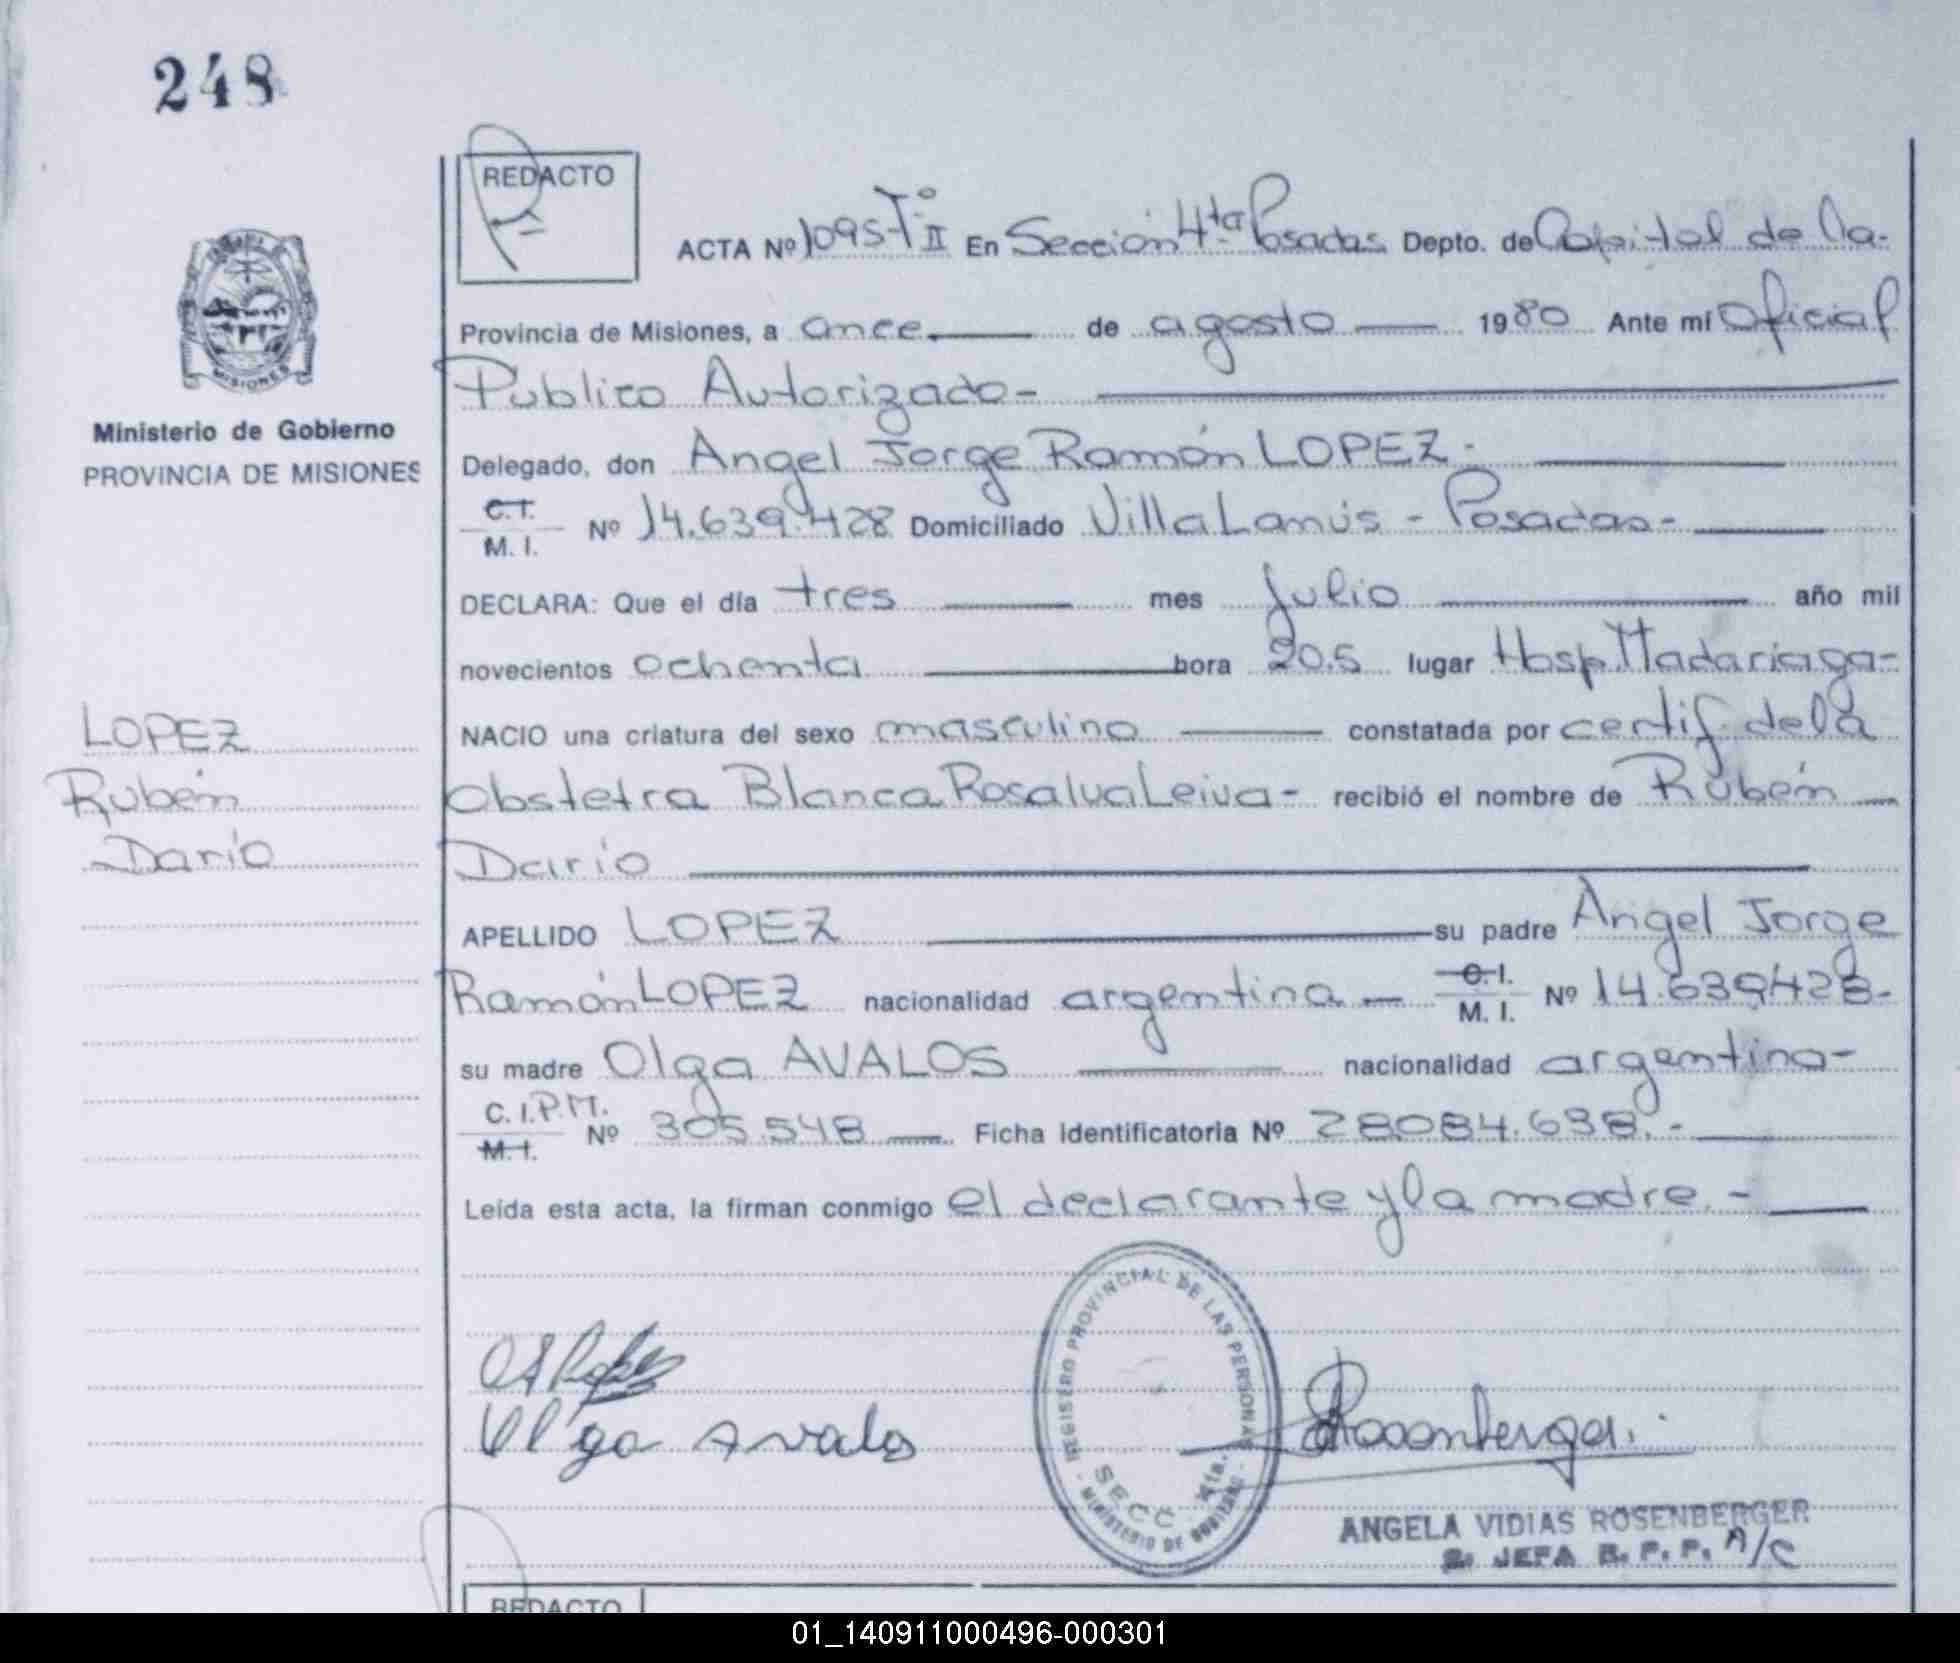 248
REDACTO
ACTA Nº 1095 Tº II En Sección 4ta Posadas Depto. de Capital de la-
Provincia de Misiones, a once de agosto 1980 Ante mí Oficial
Público Autorizado-
MISIONES
Ministerio de Gobierno
PROVINCIA DE MISIONES
Delegado, don Angel Jorge Ramón LOPEZ-
C.I. M. I. Nº 14.639.428 Domiciliado Villa Lanús - Posadas-
DECLARA: Que el día tres mes Julio año mil
novecientos ochenta hora 20.5 lugar Hosp. Madariaga-
NACIO una criatura del sexo masculino constatada por certif. de la
Obstetra Blanca Rosalva Leiva- recibió el nombre de Rubén
Darío
LOPEZ
Rubén
Darío
APELLIDO LOPEZ su padre Angel Jorge
Ramón LOPEZ nacionalidad argentina C.I. M. I. Nº 14.639428-
su madre Olga AVALOS nacionalidad argentina-
C. I. P.M. M. I. Nº 305.548 Ficha Identificatoria Nº 28.084.638.-
Leída esta acta, la firman conmigo el declarante y la madre.-
Olga Avalos
Rosenberger
REGISTRO PROVINCIAL DE LAS PERSONAS
SECC. 4ta.
MINISTERIO DE GOBIERNO
ANGELA VIDIAS ROSENBERGER
2. JEFA R. P. P. A/C
REDACTO
01_140911000496-000301